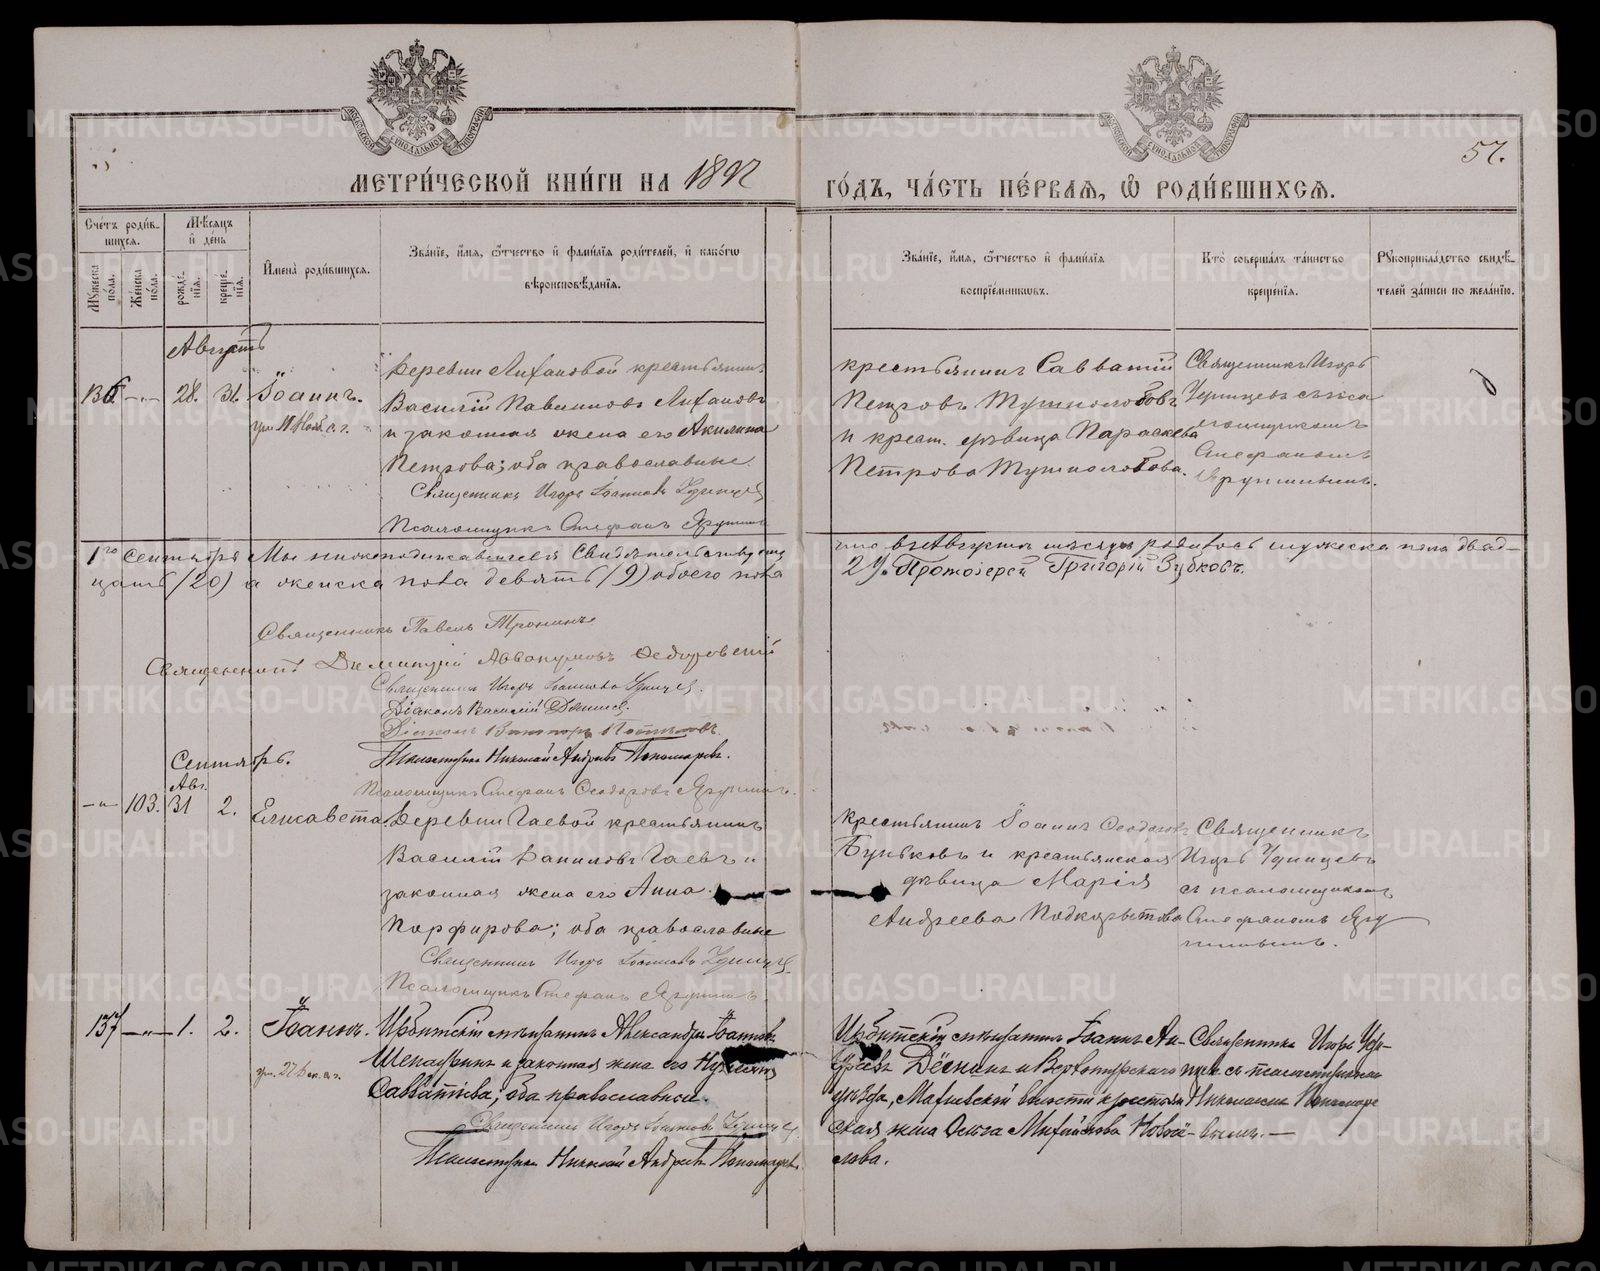 МЕТРИ́ЧЕСКОЙ КНИ́ГИ НА 1892
ГО́ДЪ, ЧА́СТЬ ПЕ́РВАЯ, Ѡ РОДИ́ВШИХСЯ.
57.
Сче́тъ роди́в-
шихся.
Мꙋ́жеска
по́ла.
Же́нска
по́ла.
Мѣ́сяцъ
и҆ де́нь
рожде́-
нїѧ.
креще́-
нїѧ.
И҆мена̀ роди́вшихся.
Зва́нїе, и҆́мя, ѻ҆́тчество и҆ фами́лїя роди́телей, и҆ како́гѡ
вѣроисповѣ́данїя.
Зва́нїе, и҆́мя, ѻ҆́тчество и҆ фами́лїя
воспрїе́мникѡвъ.
Кто̀ соверша́лъ та́инство
креще́нїя.
Рꙋкоприкла́дство свидѣ́-
телей за́писи по жела́нїю.
Августъ
136. -„- 28. 31. Іоаннъ.
Деревни Лихановой крестьянинъ
Василій Лихановъ
и законная жена его Акилина
Петрова; оба православные.
Священникъ Игорь Іоанновъ Удинцевъ
Псаломщикъ Стефанъ Ярушинъ
крестьянинъ Савватій
Петровъ Тушнолобовъ
и крест. дѣвица Параскева
Петрова Тушнолобова.
Священникъ Игорь
Удинцевъ съ
псаломщикомъ
Стефаномъ
Ярушинымъ.
1го Сентября Мы нижеподписавшіеся свидѣтельствуемъ
что въ Августѣ мѣсяцѣ родилось мужеска пола двад-
цать (20) а женска пола девять (9) обоего пола
29. Протоіерей Григорій Зубковъ.
Священникъ Павелъ Тронинъ
Священникъ Димитрій Аввакумовъ Ѳедоровскій
Священникъ Игорь Іоанновъ Удинцевъ.
Діаконъ Василій
Діаконъ Викторъ
Псаломщикъ Николай Андреевъ Пономаревъ.
Псаломщикъ Стефанъ Ѳеодоровъ Ярушинъ.
Сентябрь.
Авг.
-„- 103. 31 2. Елисавета.
Деревни Гаевой крестьянинъ
Василій Даниловъ Гаевъ и
законная жена его Анна
Порфирова; оба православные
Священникъ Игорь Іоанновъ Удинцевъ
Псаломщикъ Стефанъ Ярушинъ
Крестьянинъ Іоаннъ Ѳеодоровъ
Буньковъ и крестьянская
дѣвица Марія
Андреева Подкорытова
Священникъ
Игорь Удинцевъ
съ псаломщикомъ
Стефаномъ Яру-
шинымъ.
137 -„- 1. 2. Іоаннъ.
Ирбитскій мѣщанинъ Александръ Іоанновъ
и законная жена его
Савватіева; оба православные.
Священникъ Игорь Іоанновъ Удинцевъ
Псаломщикъ Николай Андреевъ Пономаревъ.
Ирбитскій мѣщанинъ Іоаннъ Ан-
дреевъ и Верхотурскаго
уѣзда, волости крестьян-
ская жена Ольга Новосе-
лова.
Священникъ Игорь Уди-
нцевъ съ псаломщикомъ
Николаемъ Пономаре-
вымъ.
METRIKI.GASO-URAL.RU